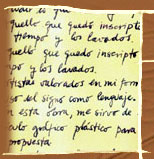 quello que quedó inscripto
tiempo y los lavados.
quello que quedó inscripto
po y los lavados.
tistas valorados en mi form
so del signo como lenguaje.
n esta obra, me sirvo de
culo gráfico plástico para
propuesta